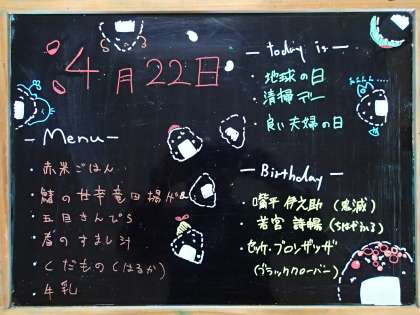 4月22日
— today is —
・地球の日
・清掃デー
・良い夫婦の日
— Menu —
・赤米ごはん
・鯖の甘辛竜田揚げ
・五目きんぴら
・春のすまし汁
・くだもの(はるか)
・牛乳
— Birthday —
・嘴平 伊之助 (鬼滅)
・若宮 詩暢 (ちはやふる)
・セッケ・ブロンザッザ
(ブラッククローバー)